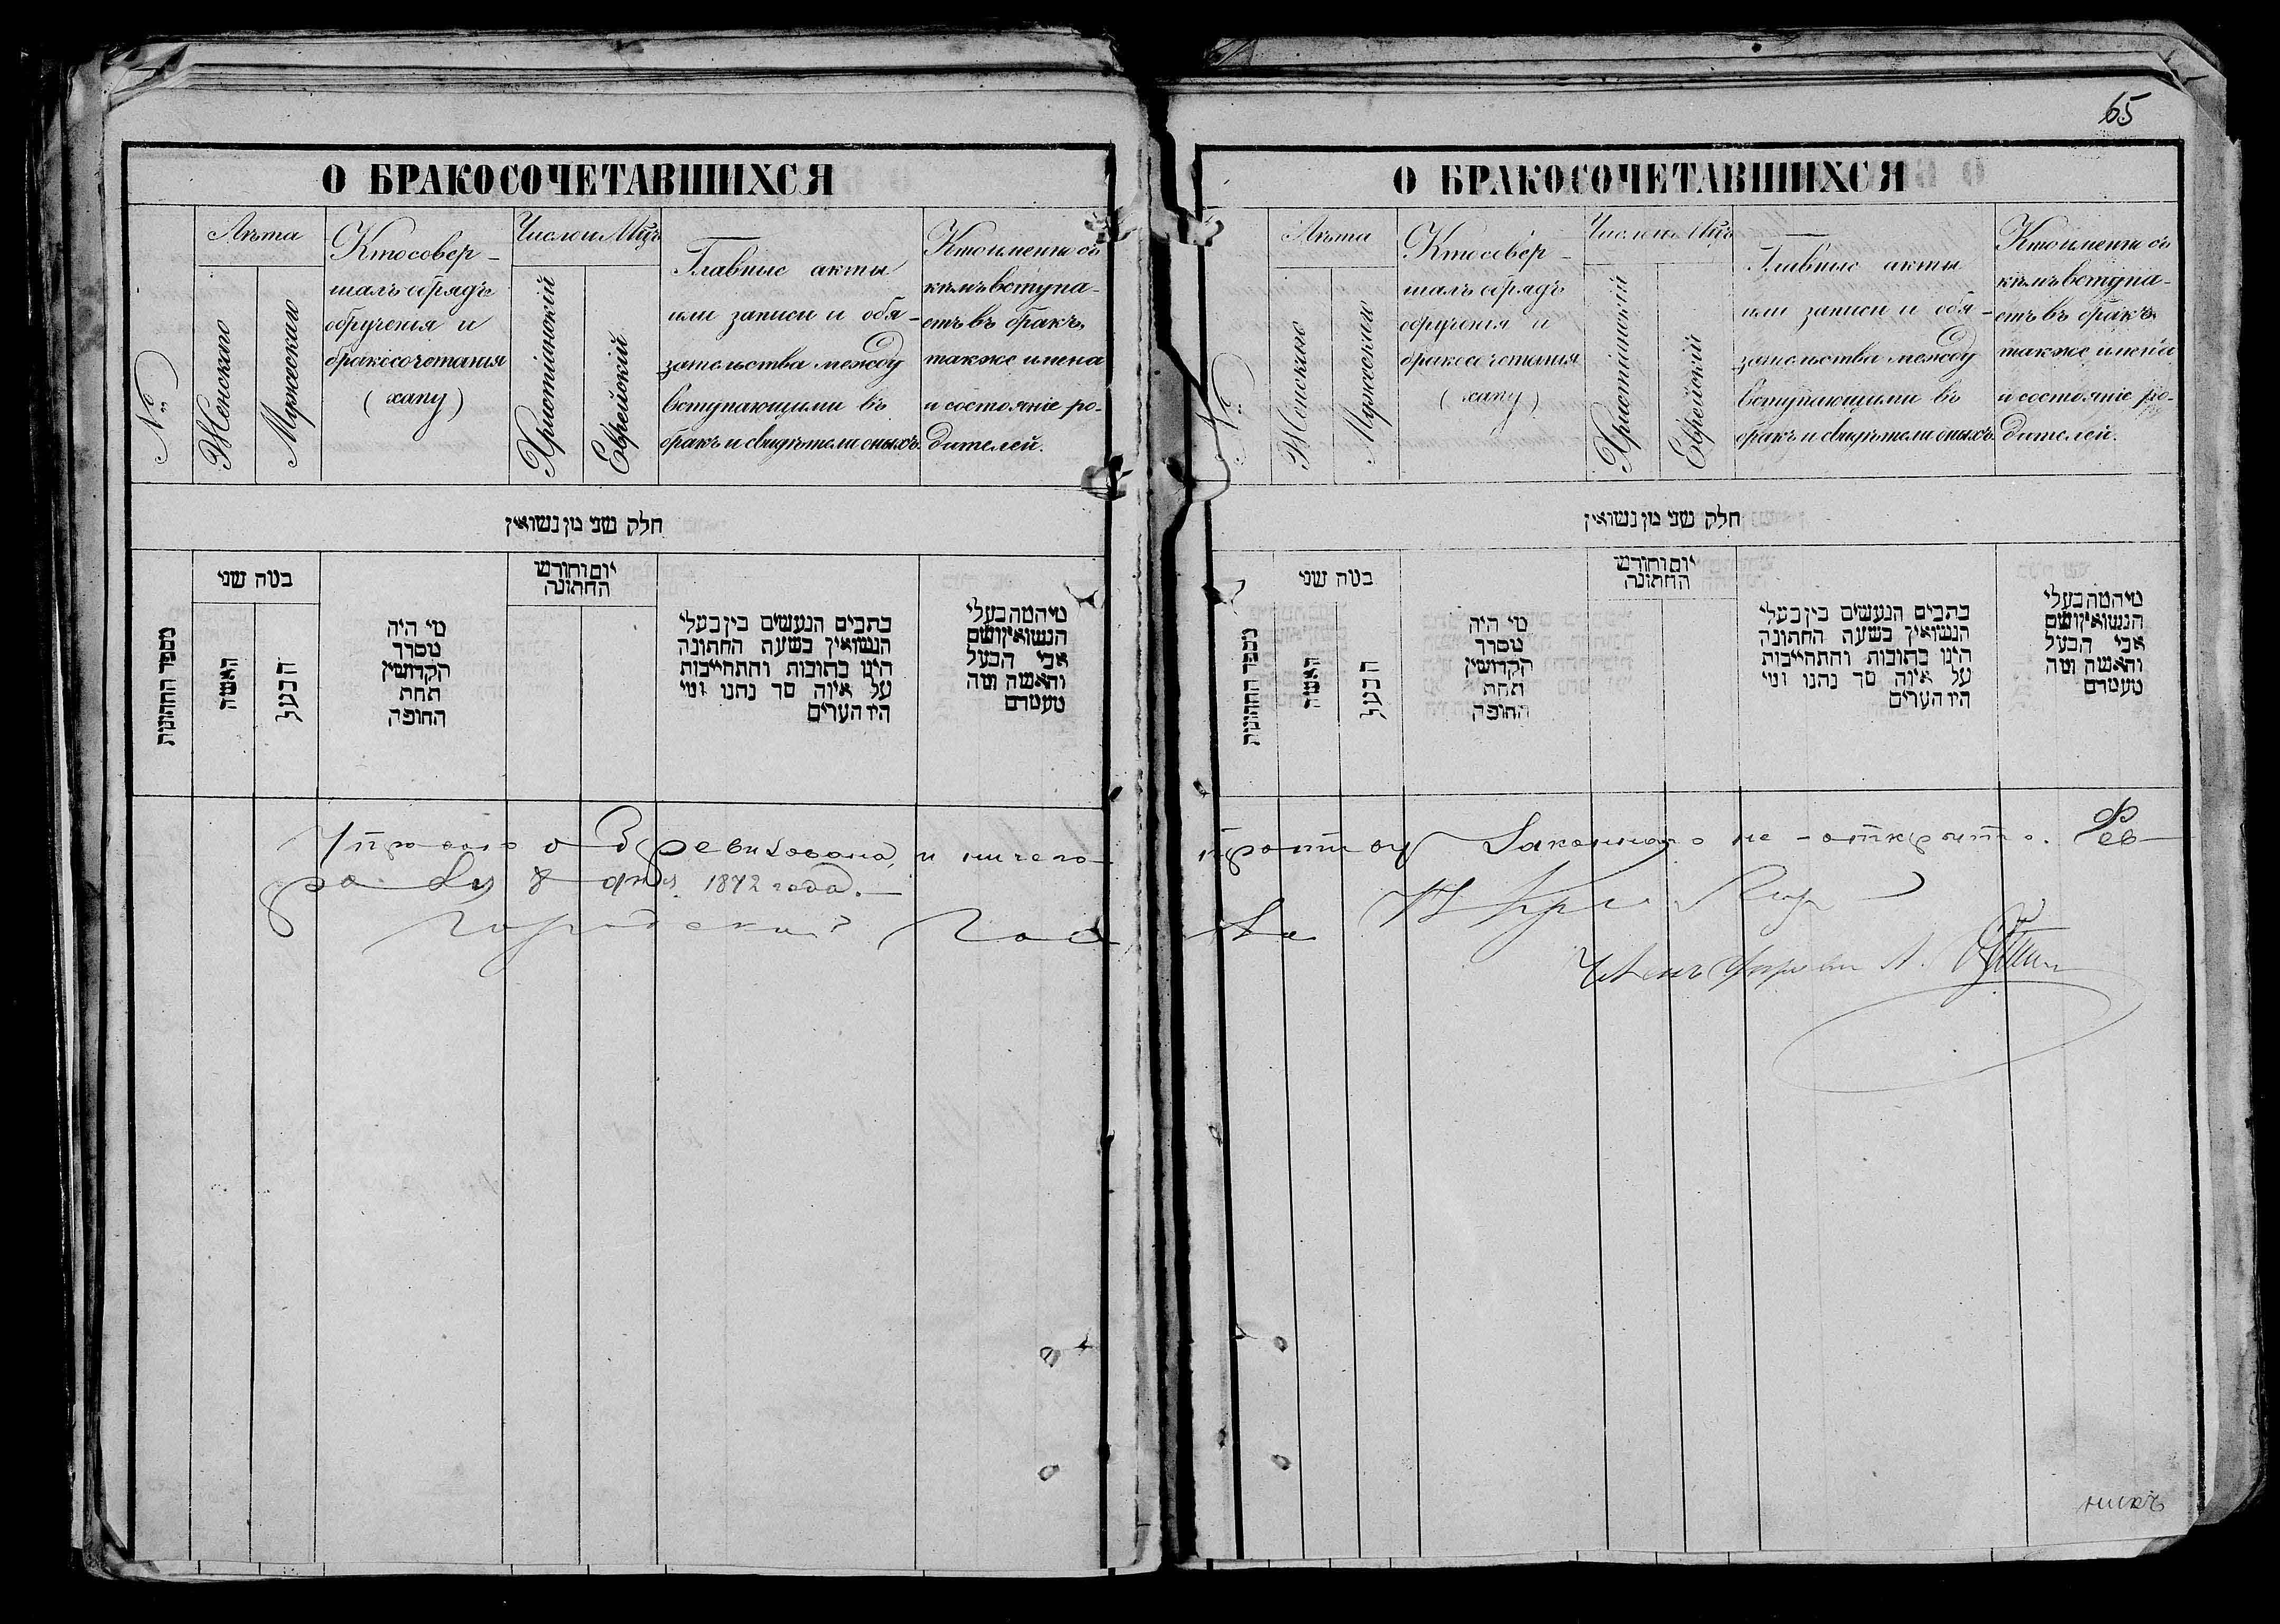 О БРАКОСОЧЕТАВШИХСЯ
№
Лѣта
Женского
Мужескаго
Ктосовер-
шалъ обрядъ
обрученiя и
бракосочетанiя
(хапу)
Число и Мцъ
Христiанскiй
Еврейскiй
Главные акты
или записи и обя-
зательства между
вступающими въ
бракъ и свидѣтели оныхъ.
Кто именно съ
кѣмъ вступа-
етъ въ бракъ,
также имена
и состоянiе ро-
дителей.
חלק שני מן נשואין
מספר החתונות
במה שני
האשה
הבעל
מי היה
מסדר
הקדושין
תחת
החופה
יום וחודש
החתונה
כתבים הנעשים בין בעלי
הנשואין בשעת החתונה
הינו כתובות והתחייבות
על איזה סך נתנו ומי
היו הערים
מיהמה בעלי
הנשואין ושם
אבי הבעל
והאשה ומה
מעמדם
ревизована и ничего
8 дня 1872 года.
Городской Голо
65
О БРАКОСОЧЕТАВШИХСЯ
№
Лѣта
Женского
Мужескаго
Ктосовер-
шалъ обрядъ
обрученiя и
бракосочетанiя
(хапу)
Число и Мцъ
Христiанскiй
Еврейскiй
Главные акты
или записи и обя-
зательства между
вступающими въ
бракъ и свидѣтели оныхъ.
Кто именно съ
кѣмъ вступа-
етъ въ бракъ,
также имена
и состоянiе ро-
дителей.
חלק שני מן נשואין
מספר החתונות
במה שני
האשה
הבעל
מי היה
מסדר
הקדושין
תחת
החופה
יום וחודש
החתונה
כתבים הנעשים בין בעלי
הנשואין בשעת החתונה
הינו כתובות והתחייבות
על איזה סך נתנו ומי
היו הערים
מיהמה בעלי
הנשואין ושם
אבי הבעל
והאשה ומה
מעמדם
законнаго не-открыто. Фев-
ва
Членъ Управы
никъ